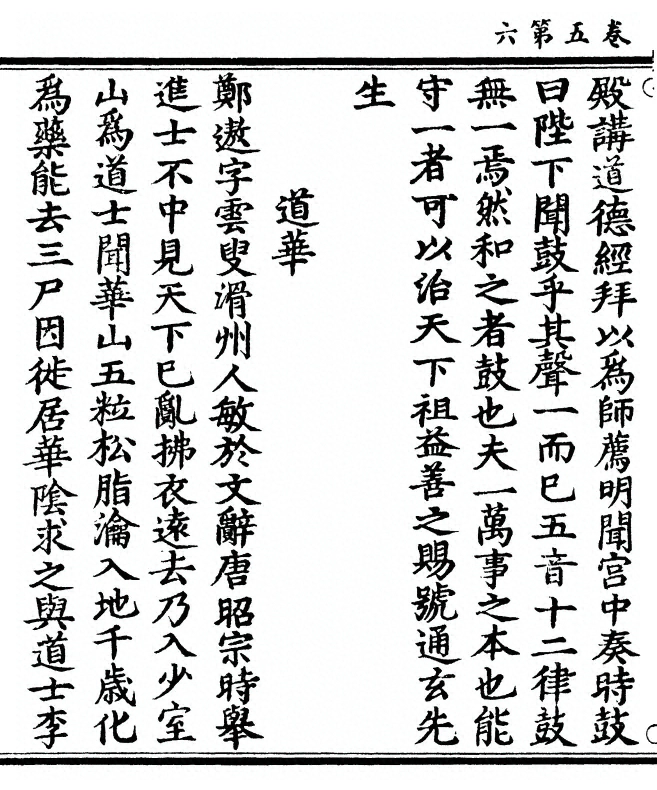 卷五第六
殿講道德經拜以爲師薦明聞宮中奏時鼓
曰陛下聞鼓乎其聲一而已五音十二律鼓
無一焉然和之者鼓也夫一萬事之本也能
守一者可以治天下祖益善之賜號通玄先
生
道華
鄭遨字雲叟滑州人敏於文辭唐昭宗時舉
進士不中見天下已亂拂衣遠去乃入少室
山爲道士聞華山五粒松脂瀹入地千歲化
爲藥能去三尸因徙居華陰求之與道士李